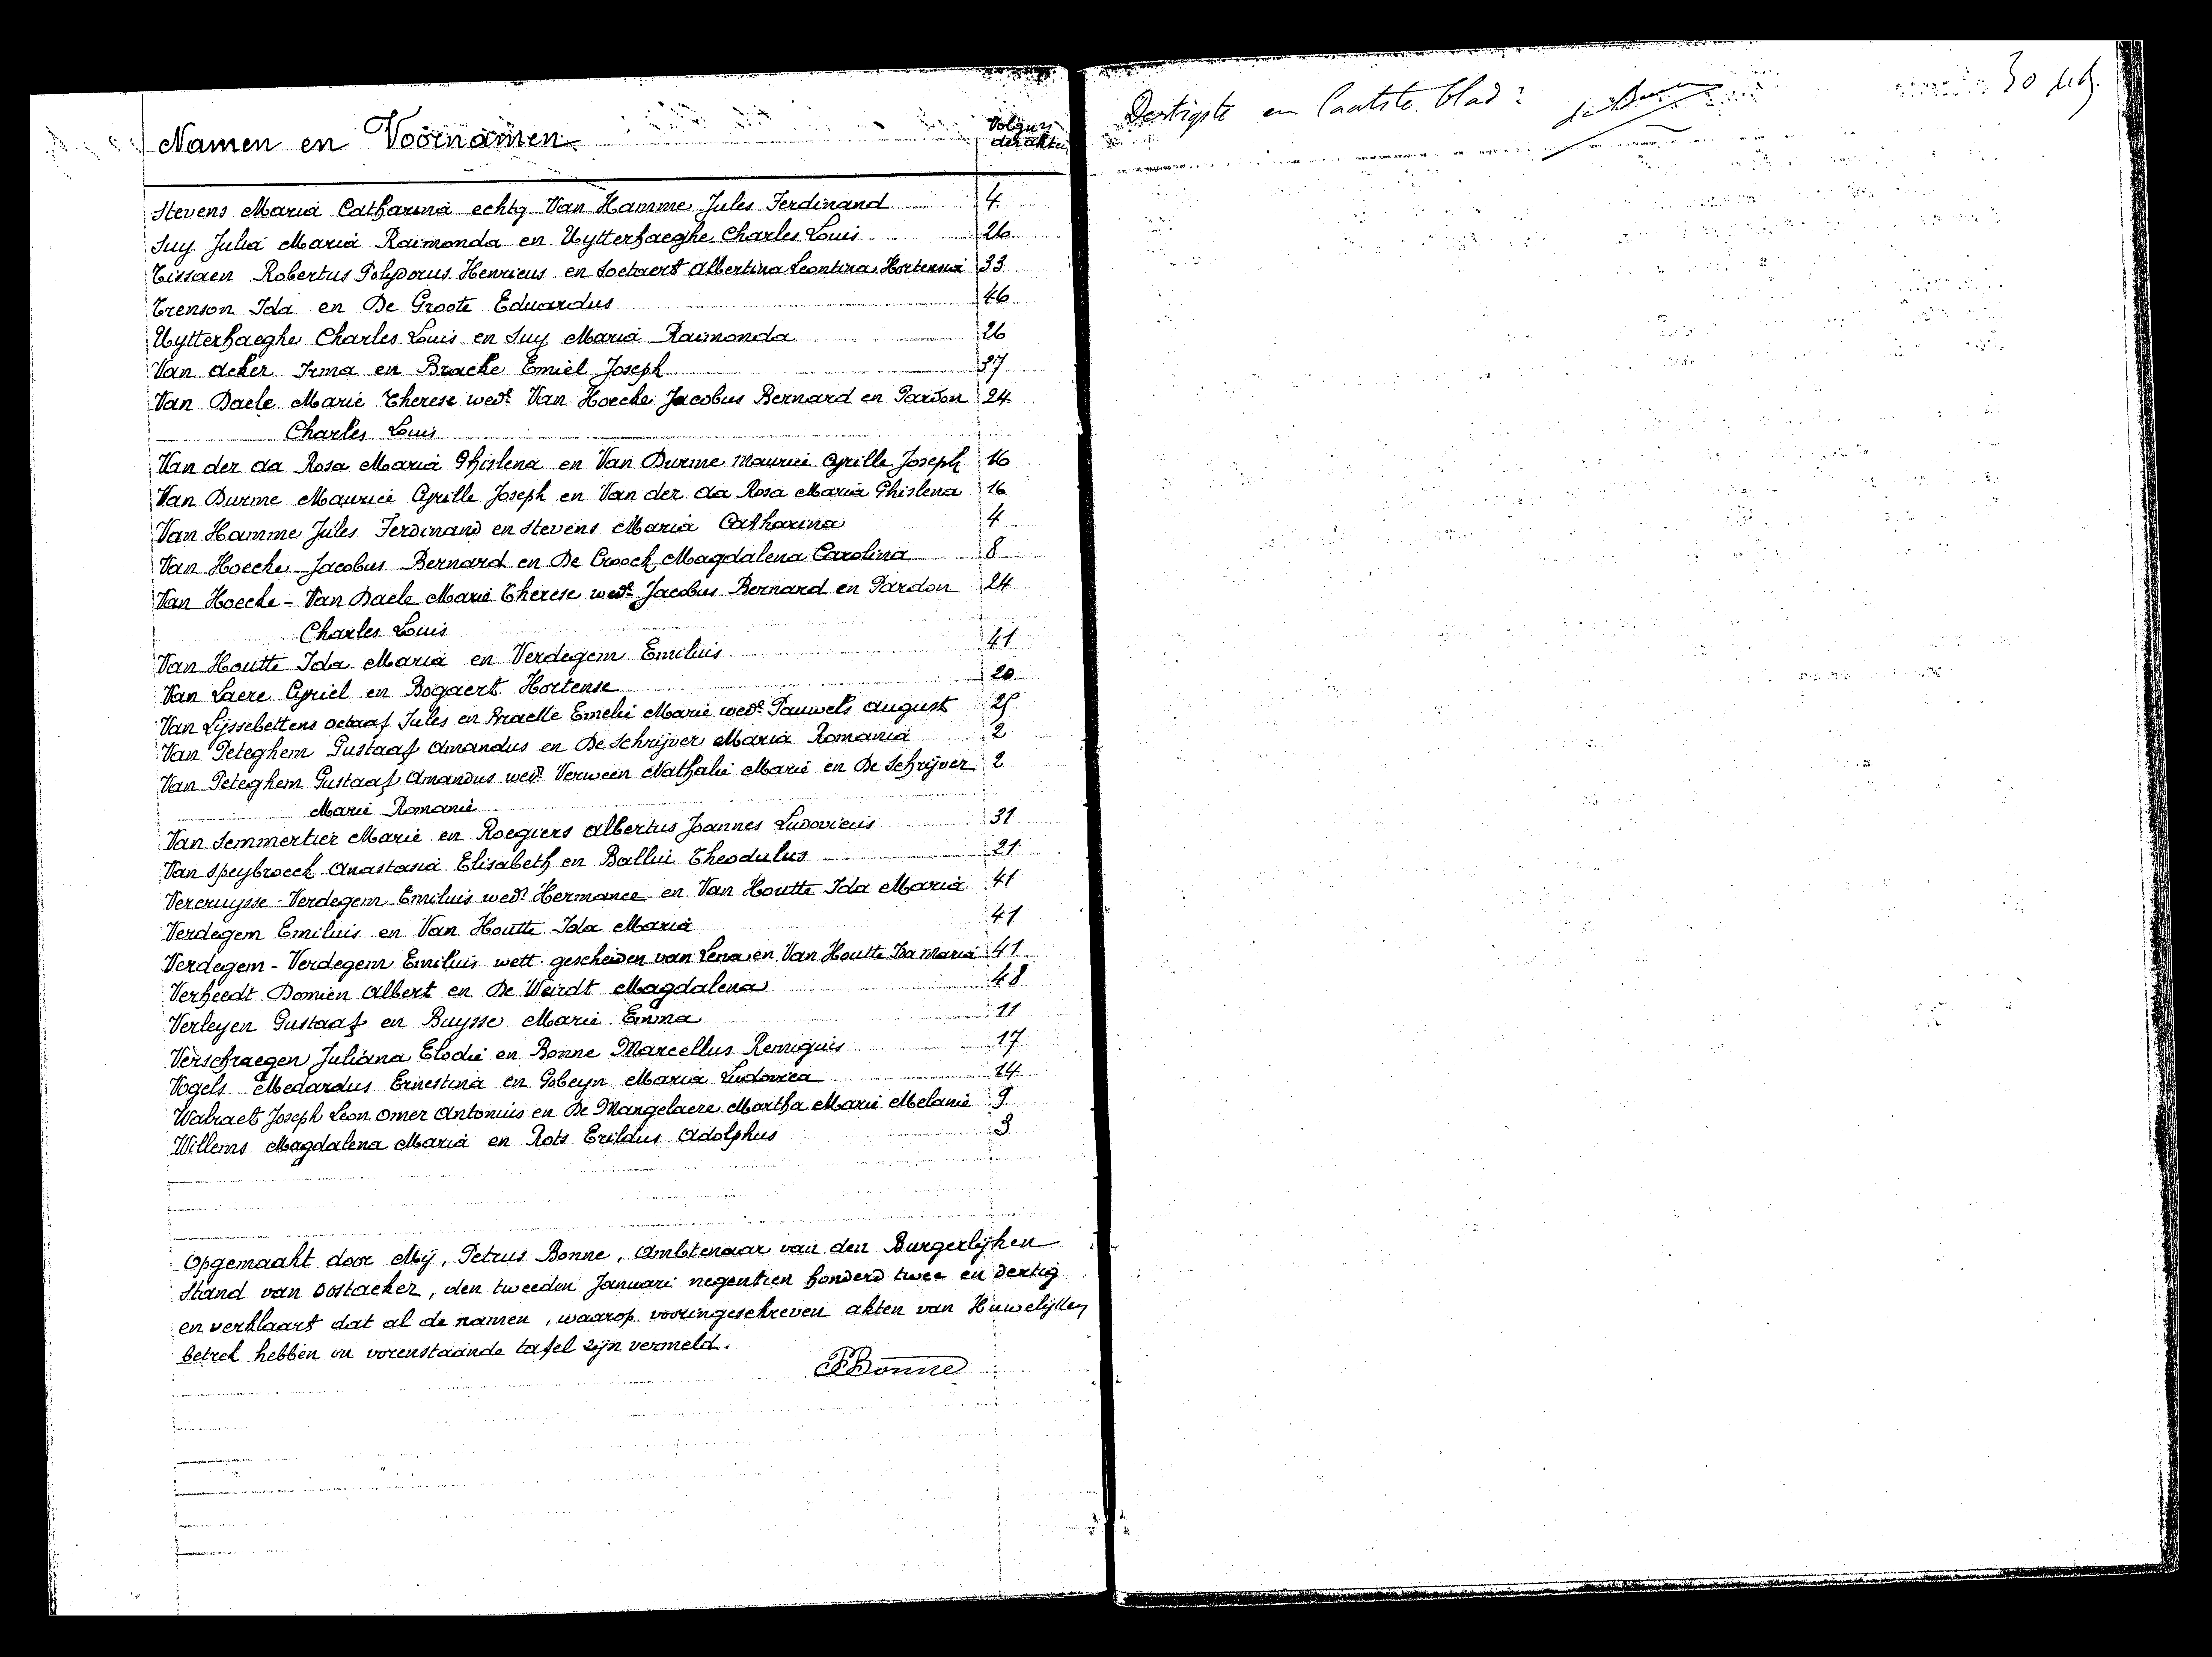 Namen en Voornamen
Volgnrs
der akten
Stevens Maria Catharina echtg Van Hamme Jules Ferdinand 4
Suy Julia Maria Raimonda en Uytterhaeghe Charles Louis 26
Tissaen Robertus Polydorus Henricus en Soetaert Albertina Leontina Hortensia 33
Trenson Ida en De Groote Eduardus 46
Uytterhaeghe Charles Louis en Suy Maria Raimonda 26
Van Acker Irma en Bracke Emiel Joseph 37
Van Daele Marie Therese wede Van Hoecke Jacobus Bernard en Pardon 24
Charles Louis
Van der Aa Rosa Maria Ghislena en Van Durme Maurice Cyrille Joseph 16
Van Durme Maurice Cyrille Joseph en Van der Aa Rosa Maria Ghislena 16
Van Hamme Jules Ferdinand en Stevens Maria Catharina 4
Van Hoecke Jacobus Bernard en De Croock Magdalena Carolina 8
Van Hoecke - Van Daele Marie Therese wede Jacobus Bernard en Pardon 24
Charles Louis
Van Houtte Ida Maria en Verdegem Emilius 41
Van Laere Cyriel en Bogaert Hortense 20
Van Lyssebettens Octaaf Jules en Braelle Emelie Marie wede Pauwels August 25
Van Peteghem Gustaaf Amandus en De Schrijver Maria Romania 2
Van Peteghem Gustaaf Amandus wedr Verween Nathalie Marie en De Schrijver 2
Marie Romanie
Van Semmertier Marie en Roegiers Albertus Joannes Ludovicus 31
Van Speybroeck Anastasia Elisabeth en Ballui Theodulus 21
Vercruysse - Verdegem Emilius wedr Hermance en Van Houtte Ida Maria 41
Verdegem Emilius en Van Houtte Ida Maria 41
Verdegem - Verdegem Emilius wett. gescheiden van Lena en Van Houtte Ida Maria 41
Verheedt Domien Albert en De Weirdt Magdalena 48
Verleyen Gustaaf en Buysse Marie Emma 11
Verschraegen Juliana Elodie en Bonne Marcellus Remiguis 17
Vogels Medardus Ernestina en Gobeyn Maria Ludovica 14
Walraet Joseph Leon Omer Antonius en De Mangelaere Martha Marie Melanie 9
Willems Magdalena Maria en Rots Erildus Adolphus 3
Opgemaakt door Mij, Petrus Bonne, Ambtenaar van den Burgerlijken
Stand van Oostacker, den tweeden Januari negentien honderd twee en dertig
en verklaart dat al de namen, waarop vooringeschreven akten van Huwelijken
betrek hebben in vorenstaande tafel zijn vermeld.
PBonne
Dertigste en laatste blad:
30